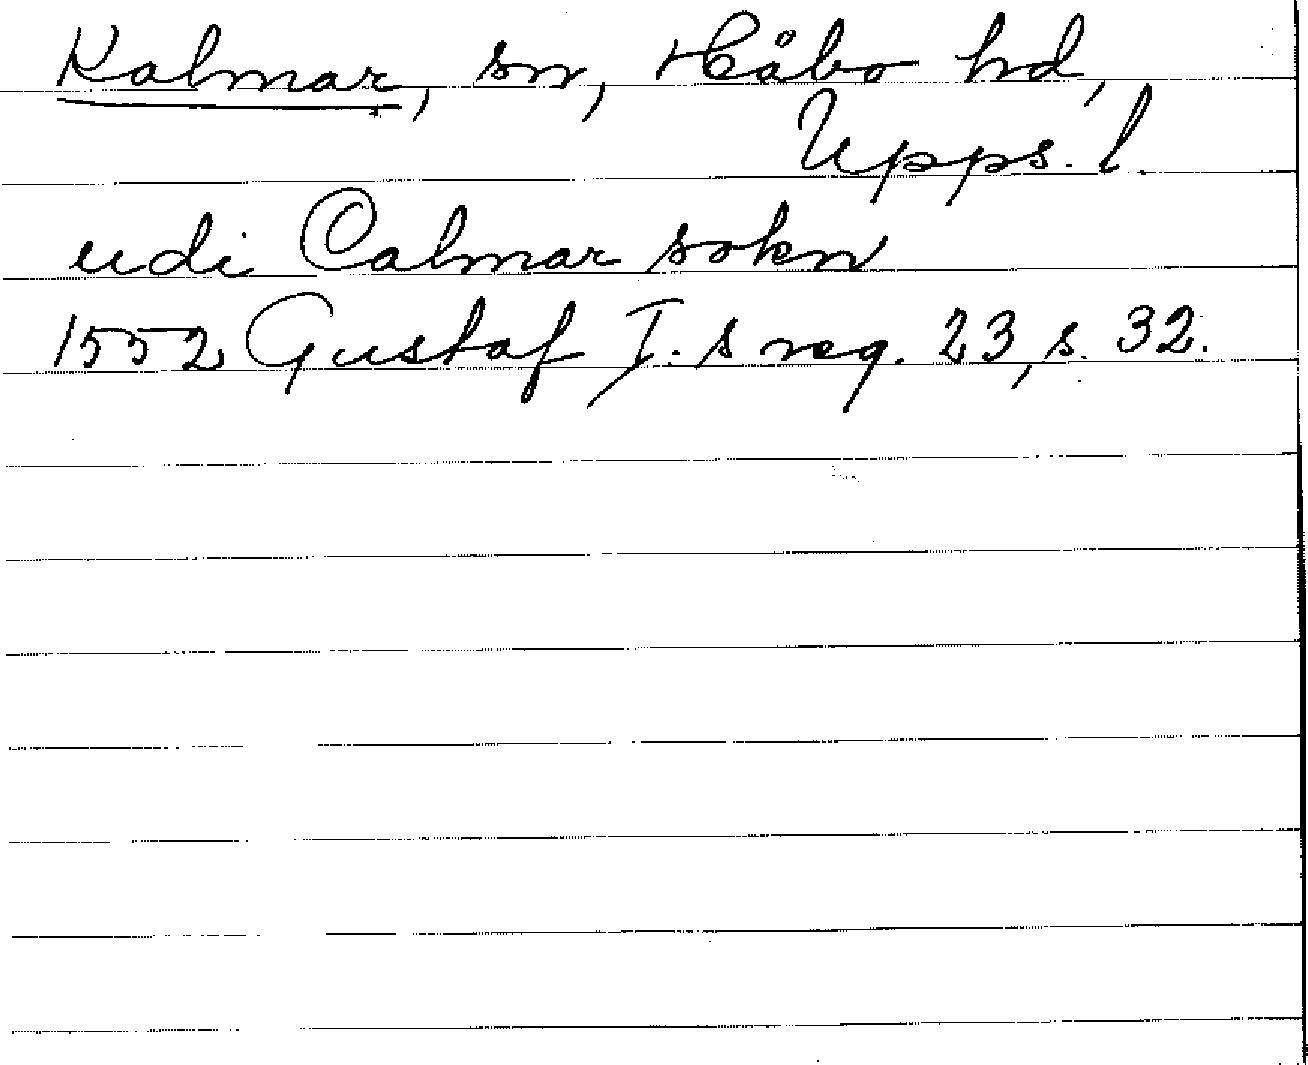 Kalmar, sn, Håbo hd,
Upps. l.
udi Calmar sokn
1552 Gustaf I. s reg. 23, s. 32.